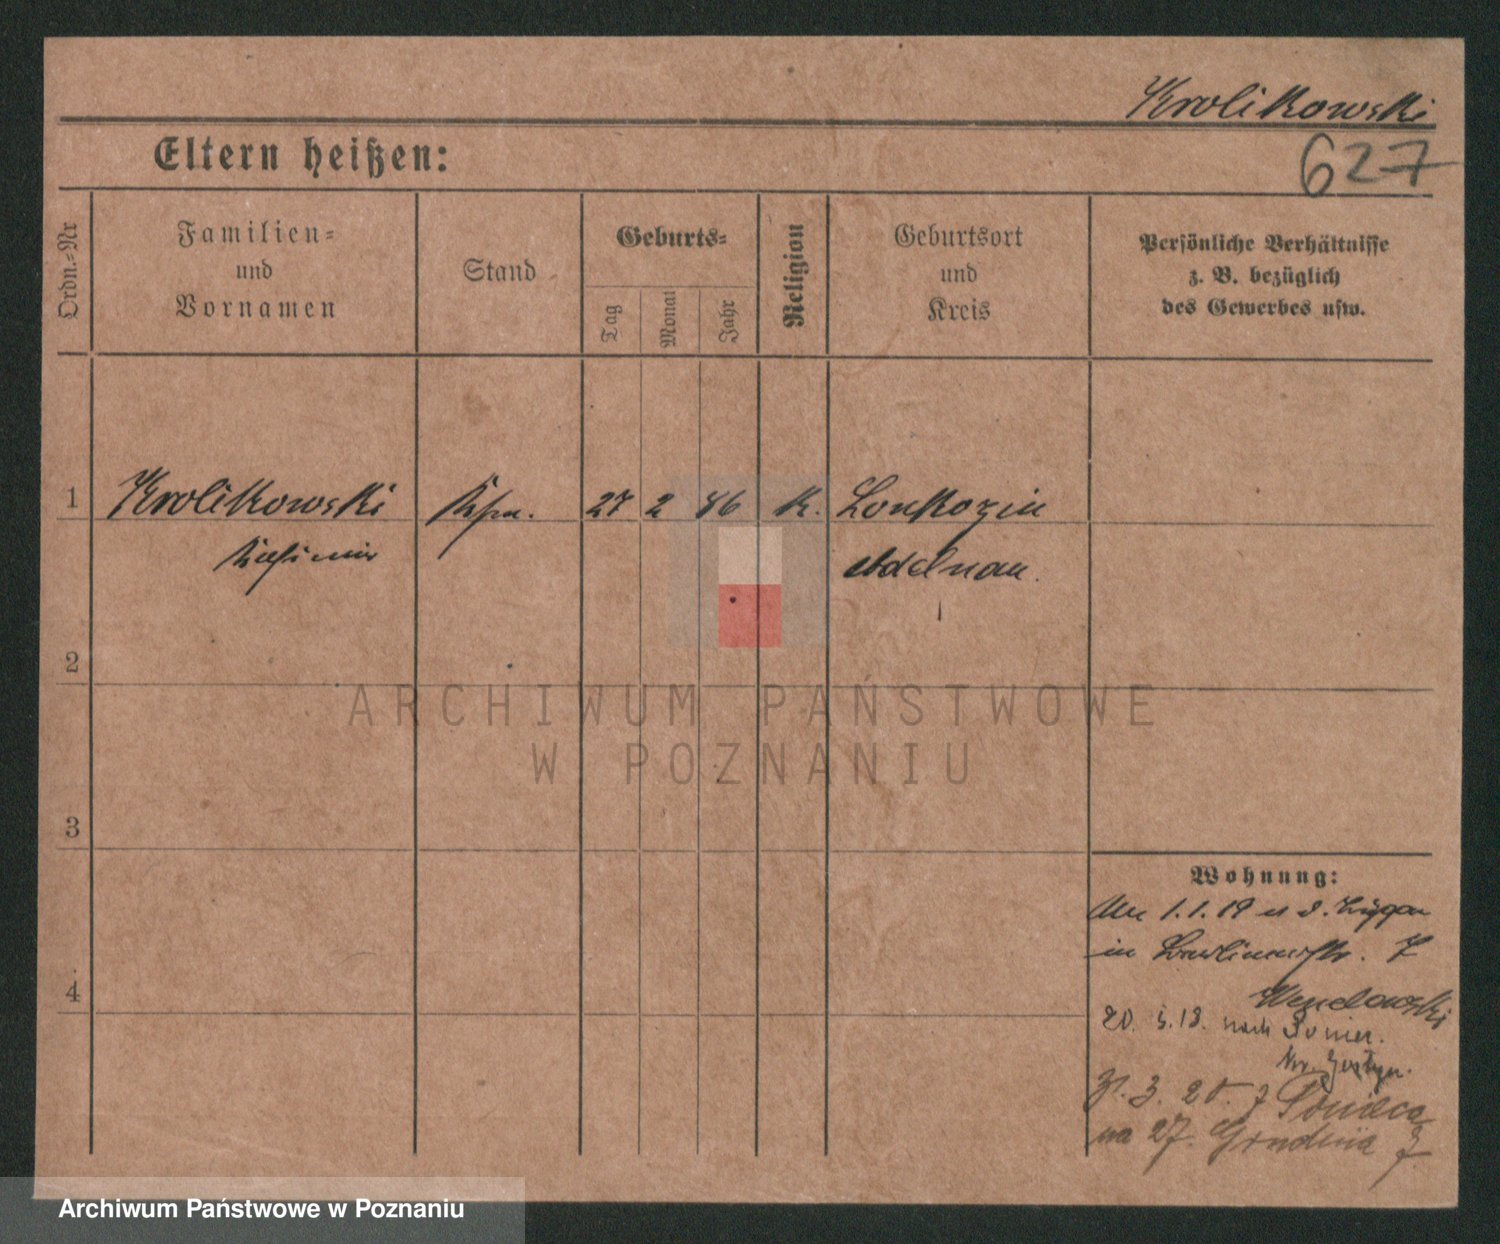 Krolikowski
Eltern heißen:
627
Ordn.-Nr
Familien-
und
Vornamen
Stand
Geburts-
Tag
Monat
Jahr
Religion
Geburtsort
und
Kreis
Persönliche Verhältnisse
z. B. bezüglich
des Gewerbes usw.
1 Krolikowski 27 2 86 K.
Kasimir Adelnau.
2
3
4
Wohnung:
1.1.19
in 7
20. 5.19. nach Punitz.
Kr. Gostyn.
31. 3. 20. z Ponieca
na 27. Grudnia 7
ARCHIWUM PAŃSTWOWE
W POZNANIU
Archiwum Państwowe w Poznaniu